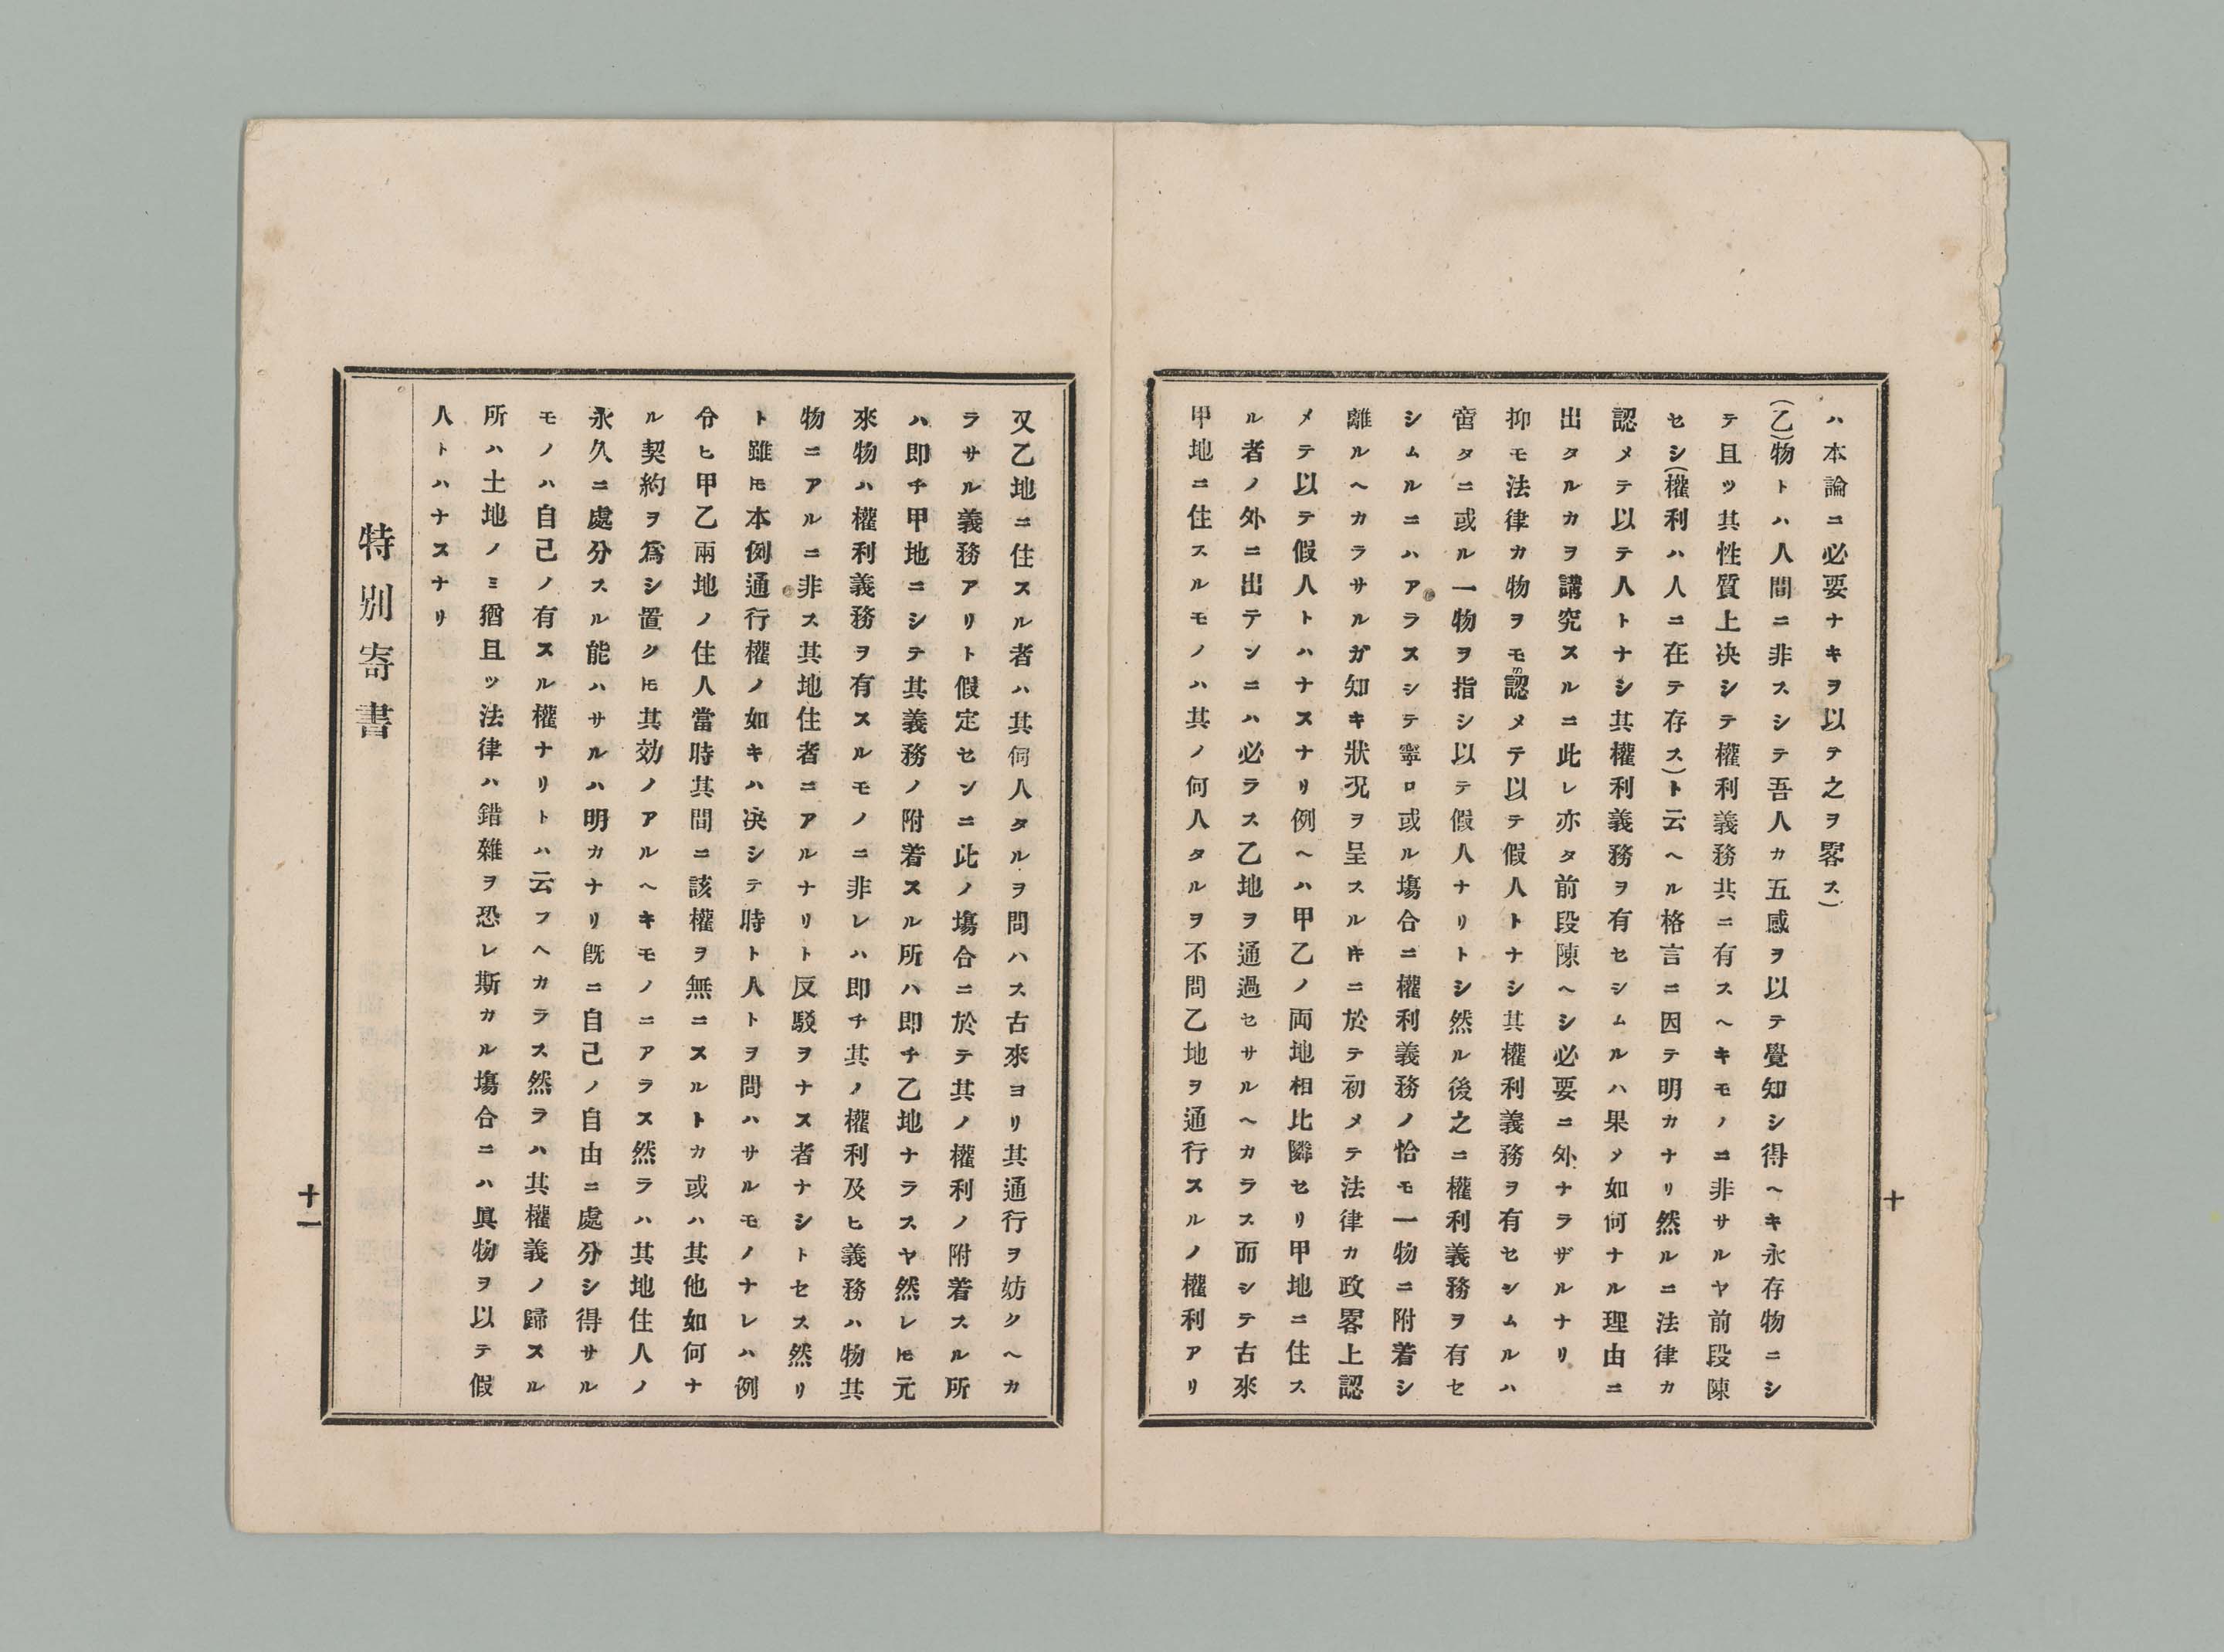 ハ本論ニ必要ナキヲ以テ之ヲ畧ス)
(乙)物トハ人間ニ非スシテ吾人カ五感ヲ以テ覺知シ得ヘキ永存物ニシ
テ且ツ其性質上决シテ權利義務共ニ有スヘキモノニ非サルヤ前段陳
セシ(權利ハ人ニ在テ存ス)ト云ヘル格言ニ因テ明カナリ然ルニ法律カ
認メテ以テ人トナシ其權利義務ヲ有セシムルハ果メ如何ナル理由ニ
出タルカヲ講究スルニ此レ亦タ前段陳ヘシ必要ニ外ナラザルナリ
抑モ法律カ物ヲモ認メテ以テ假人トナシ其權利義務ヲ有セシムルハ
啻タニ或ル一物ヲ指シ以テ假人ナリトシ然ル後之ニ權利義務ヲ有セ
シムルニハアラスシテ寧ロ或ル塲合ニ權利義務ノ恰モ一物ニ附着シ
離ルヘカラサルガ知キ狀况ヲ呈スルキニ於テ初メテ法律カ政畧上認
メテ以テ假人トハナスナリ例ヘハ甲乙ノ両地相比隣セリ甲地ニ住ス
ル者ノ外ニ出テンニハ必ラス乙地ヲ通過セサルヘカラス而シテ古來
甲地ニ住スルモノハ其ノ何人タルヲ不問乙地ヲ通行スルノ權利アリ
十
又乙地ニ住スル者ハ其何人タルヲ問ハス古來ヨリ其通行ヲ妨クヘカ
ラサル義務アリト假定センニ此ノ塲合ニ於テ其ノ權利ノ附着スル所
ハ即チ甲地ニシテ其義務ノ附着スル所ハ即チ乙地ナラスヤ然レ𪜈元
來物ハ權利義務ヲ有スルモノニ非レハ即チ其ノ權利及ヒ義務ハ物其
物ニアルニ非ス其地住者ニアルナリト反駁ヲナス者ナシトセス然リ
ト雖𪜈本例通行權ノ如キハ决シテ時ト人トヲ問ハサルモノナレハ例
令ヒ甲乙兩地ノ住人當時其間ニ該權ヲ無ニスルトカ或ハ其他如何ナ
ル契約ヲ爲シ置ク𪜈其効ノアルヘキモノニアラス然ラハ其地住人ノ
永久ニ處分スル能ハサルハ明カナリ旣ニ自己ノ自由ニ處分シ得サル
モノハ自己ノ有スル權ナリトハ云フヘカラス然ラハ其權義ノ歸スル
所ハ土地ノミ猶且ツ法律ハ錯雜ヲ恐レ斯カル塲合ニハ眞物ヲ以テ假
人トハナスナリ
特別寄書
十一